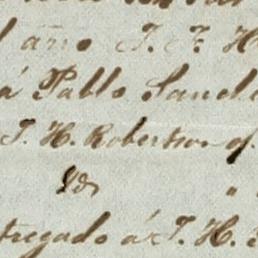 año J. F. H
á Pablo Sanche
T. H. Robertson of
Id "
tregado á T. H.